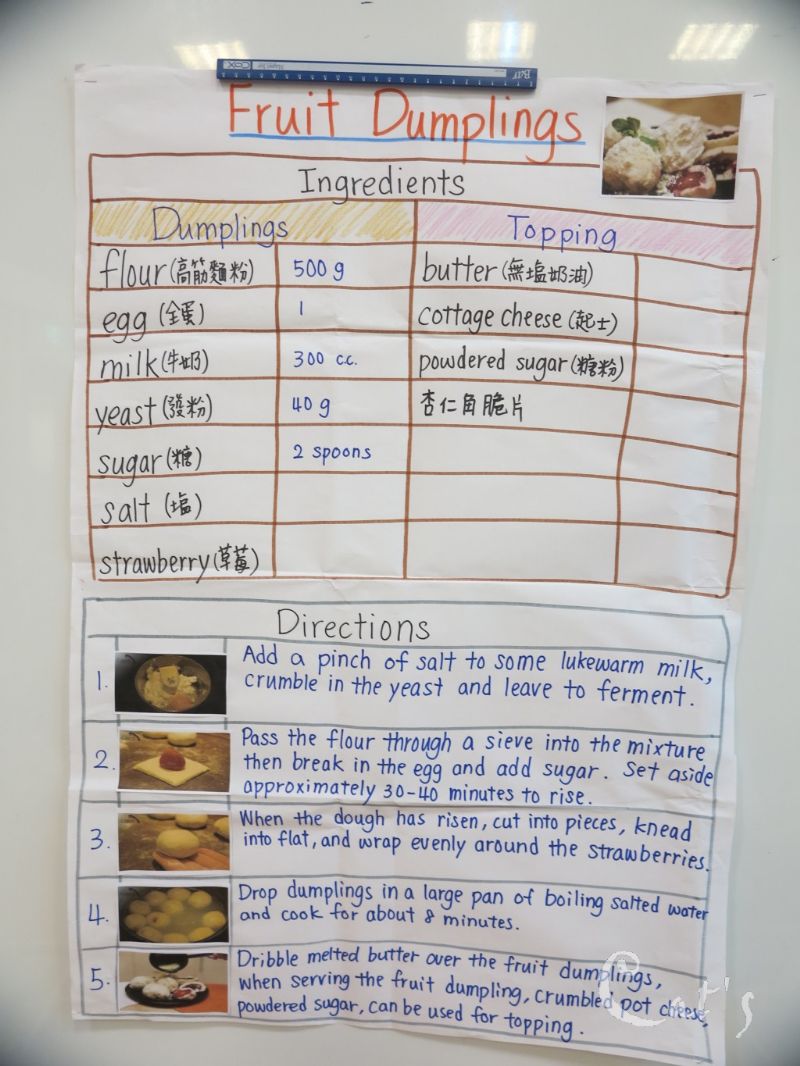 Fruit Dumplings
Ingredients
Dumplings
Topping
flour (高筋麵粉) 500 g
butter (無塩奶油)
egg (全蛋) 1
cottage cheese (起士)
milk (牛奶) 300 c.c.
powdered sugar (糖粉)
yeast (發粉) 40 g
杏仁角脆片
sugar (糖) 2 spoons
salt (塩)
strawberry (草莓)
Directions
1. Add a pinch of salt to some lukewarm milk,
crumble in the yeast and leave to ferment.
2. Pass the flour through a sieve into the mixture
then break in the egg and add sugar. Set aside
approximately 30-40 minutes to rise.
3. When the dough has risen, cut into pieces, knead
into flat, and wrap evenly around the strawberries.
4. Drop dumplings in a large pan of boiling salted water
and cook for about 8 minutes.
5. Dribble melted butter over the fruit dumplings,
when serving the fruit dumpling, crumbled pot cheese,
powdered sugar, can be used for topping.
Cat's
COX